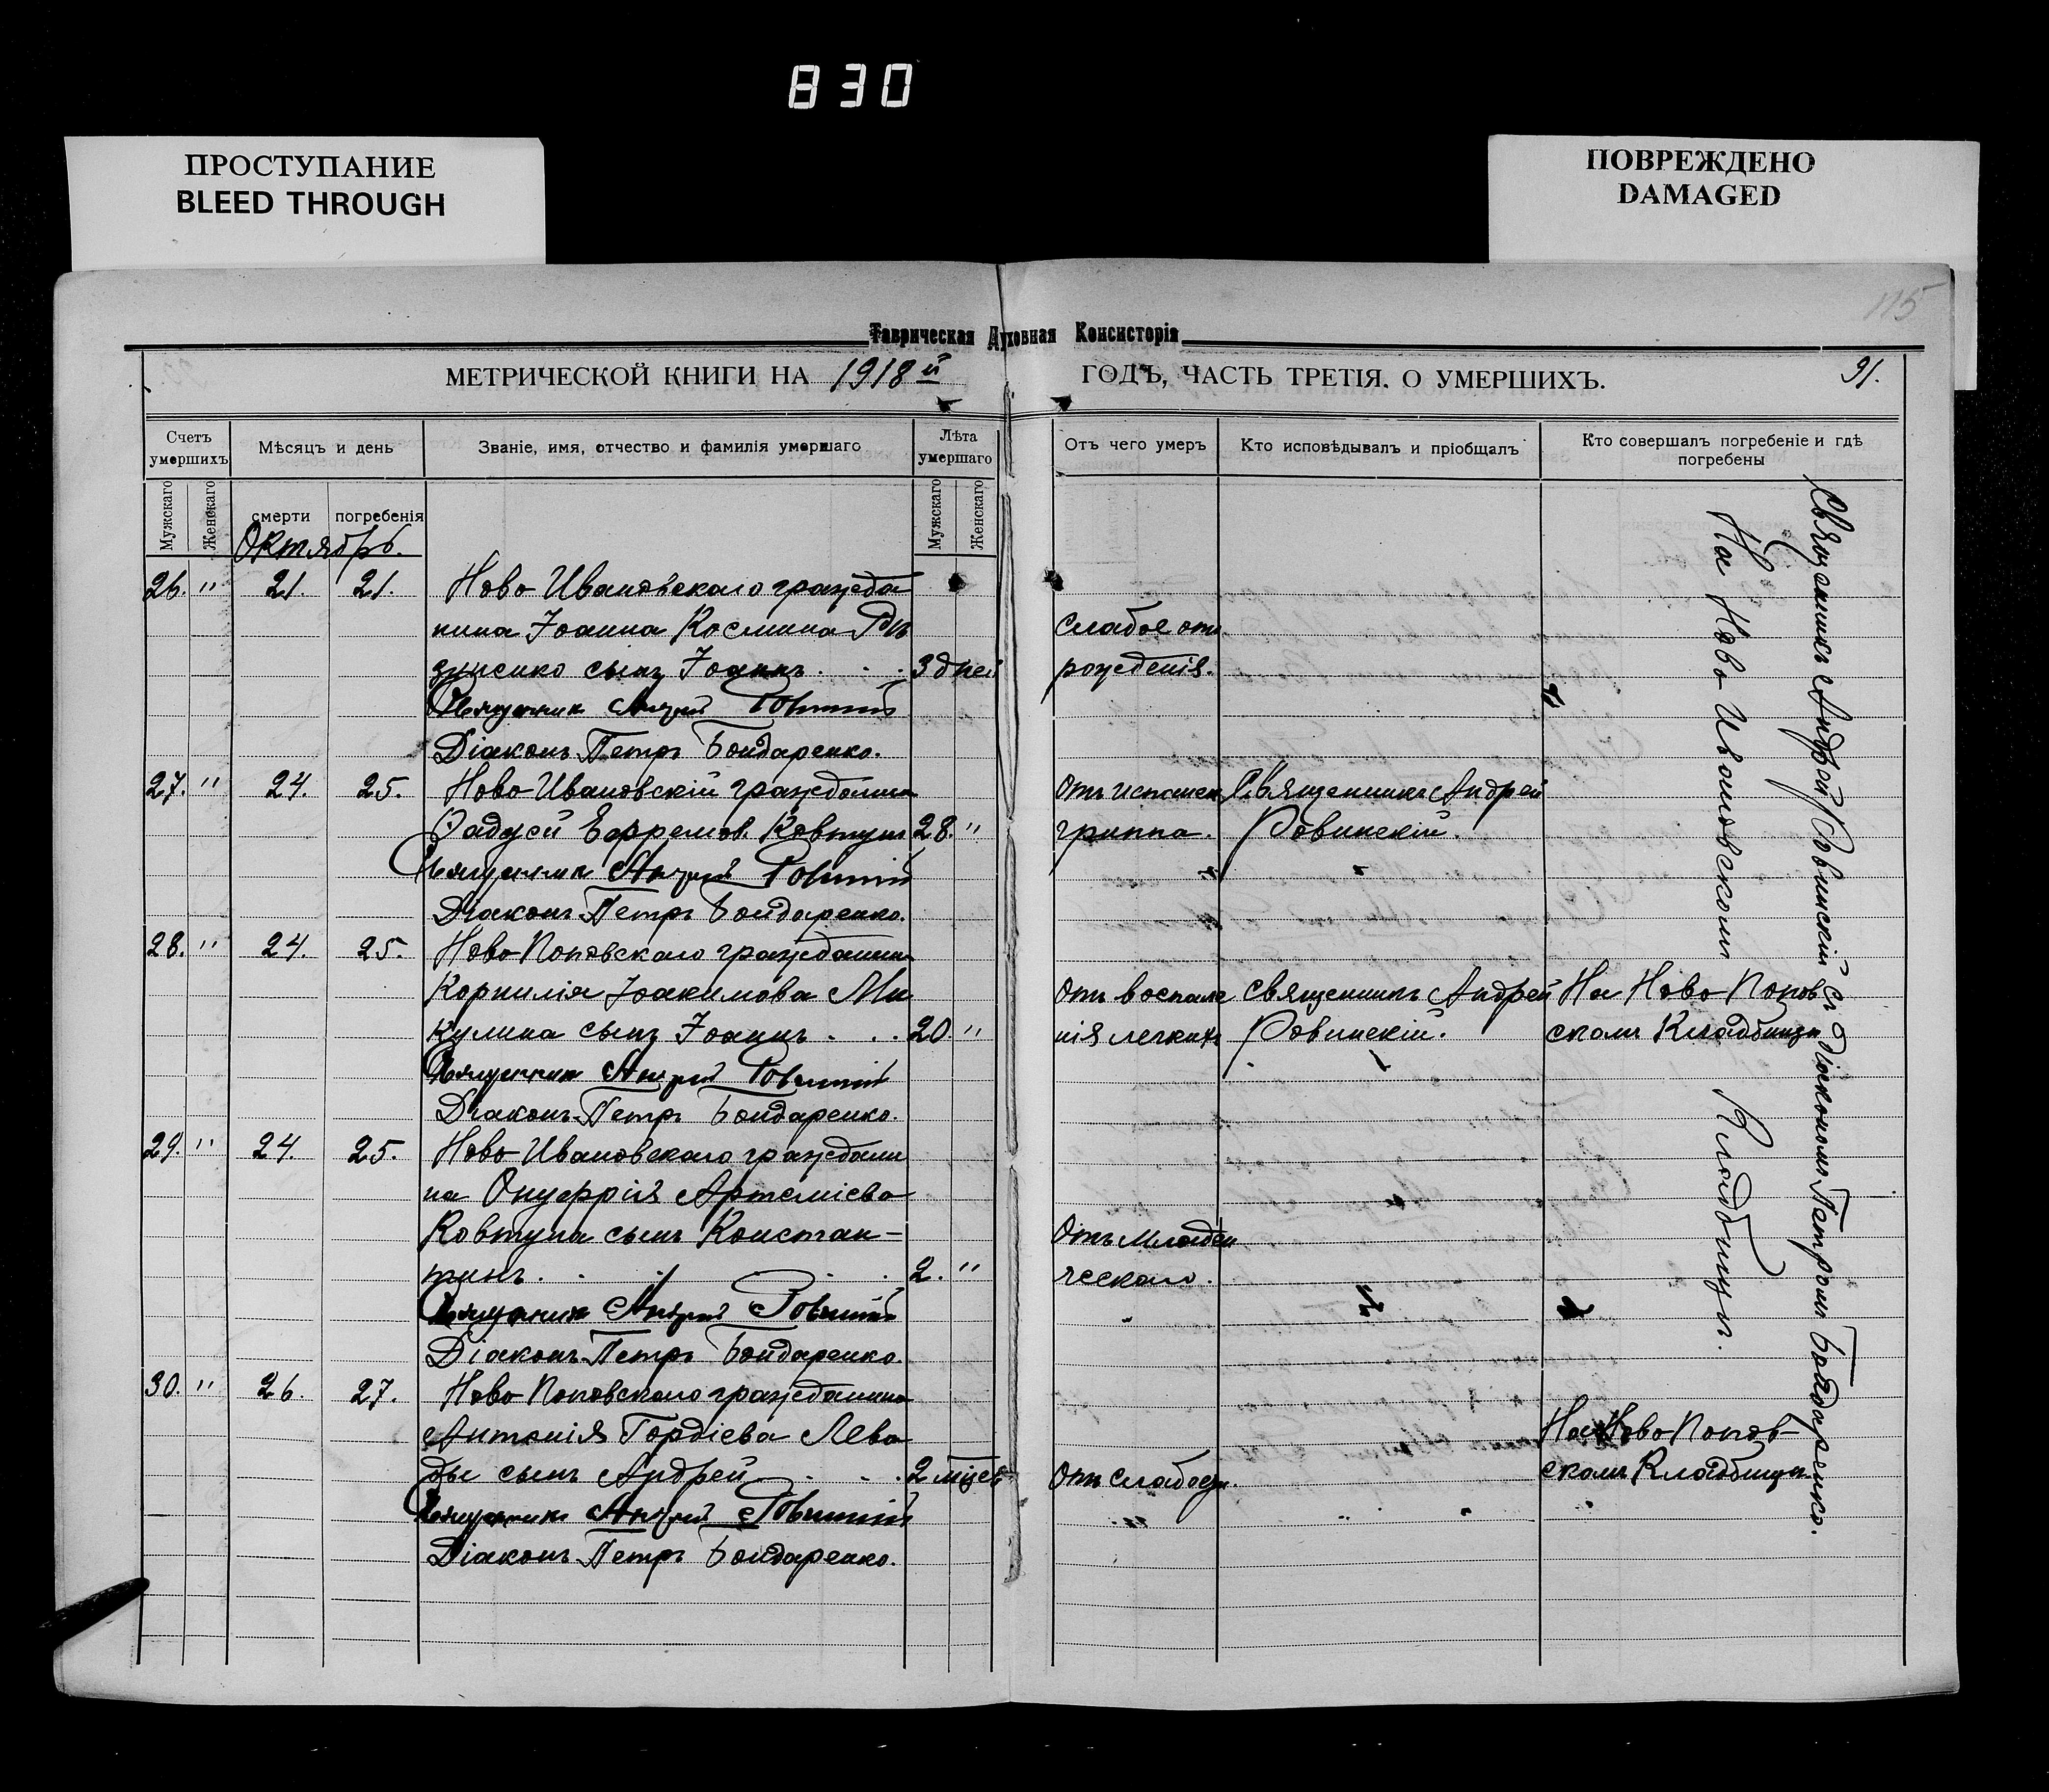 830
ПРОСТУПАНИЕ
BLEED THROUGH
ПОВРЕЖДЕНО
DAMAGED
115
Таврическая Духовная Консисторія
МЕТРИЧЕСКОЙ КНИГИ НА 1918й ГОДЪ, ЧАСТЬ ТРЕТІЯ. О УМЕРШИХЪ. 91.
Счетъ умершихъ
Мѣсяцъ и день
Званіе, имя, отчество и фамилія умершаго
Лѣта умершаго
Отъ чего умеръ
Кто исповѣдывалъ и пріобщалъ
Кто совершалъ погребеніе и гдѣ погребены
Мужскаго Женскаго смерти погребенія Мужскаго Женскаго
Октябрь.
26. " 21. 21. Ново Ивановскаго гражда
нина Іоанна Космина слабое отъ
сынъ Іоаннъ. 3 дней рожденія.
Священник Андрей Ровинскій
Діаконъ Петръ Бондаренко.
27. " 24. 25. Ново Ивановскій гражданинъ Отъ Священникъ Андрей
Фадей Ефремов. Ковтунъ 28. " гриппа. Ровинскій.
Священник Андрей Ровинскій
Діаконъ Петръ Бондаренко.
28. " 24. 25. Ново Поповскаго гражданина
Корнилія Іоакимова Ми Отъ воспале священникъ Андрей На Ново Попов
кулина сынъ Іоаннъ. 20. " нія легкихъ Ровинскій. скомъ Кладбищѣ
Священник Андрей Ровинскій
Діаконъ Петръ Бондаренко.
29. " 24. 25. Ново Ивановскаго граждани
на Онуфрія Артеміева
Ковтуна сынъ Констан- Отъ младен
тинъ. 2. " ческаго.
Священник Андрей Ровинскій
Діаконъ Петръ Бондаренко.
30. " 26. 27. Ново Поповскаго гражданина
Антонія Гордіева Лева На Ново Попов-
ды сынъ Андрей 2 Отъ слабости. скомъ Кладбищѣ
Священник Андрей Ровинскій
Діаконъ Петръ Бондаренко.
Священникъ Андрей Ровинскій съ діакономъ Петромъ Бондаренко.
На Ново Ивановскомъ Кладбищѣ.